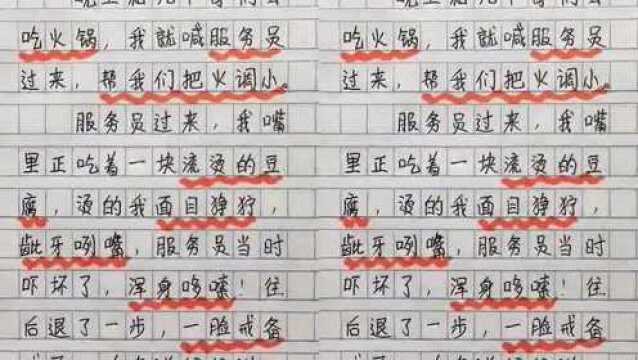 吃火锅，我就喊服务员
过来，帮我们把火调小。
服务员过来，我嘴
里正吃着一块流烫的豆
腐，烫的我面目狰狞，
龇牙咧嘴，服务员当时
吓坏了，浑身哆嗦！往
后退了一步，一脸戒备
吃火锅，我就喊服务员
过来，帮我们把火调小。
服务员过来，我嘴
里正吃着一块流烫的豆
腐，烫的我面目狰狞，
龇牙咧嘴，服务员当时
吓坏了，浑身哆嗦！往
后退了一步，一脸戒备